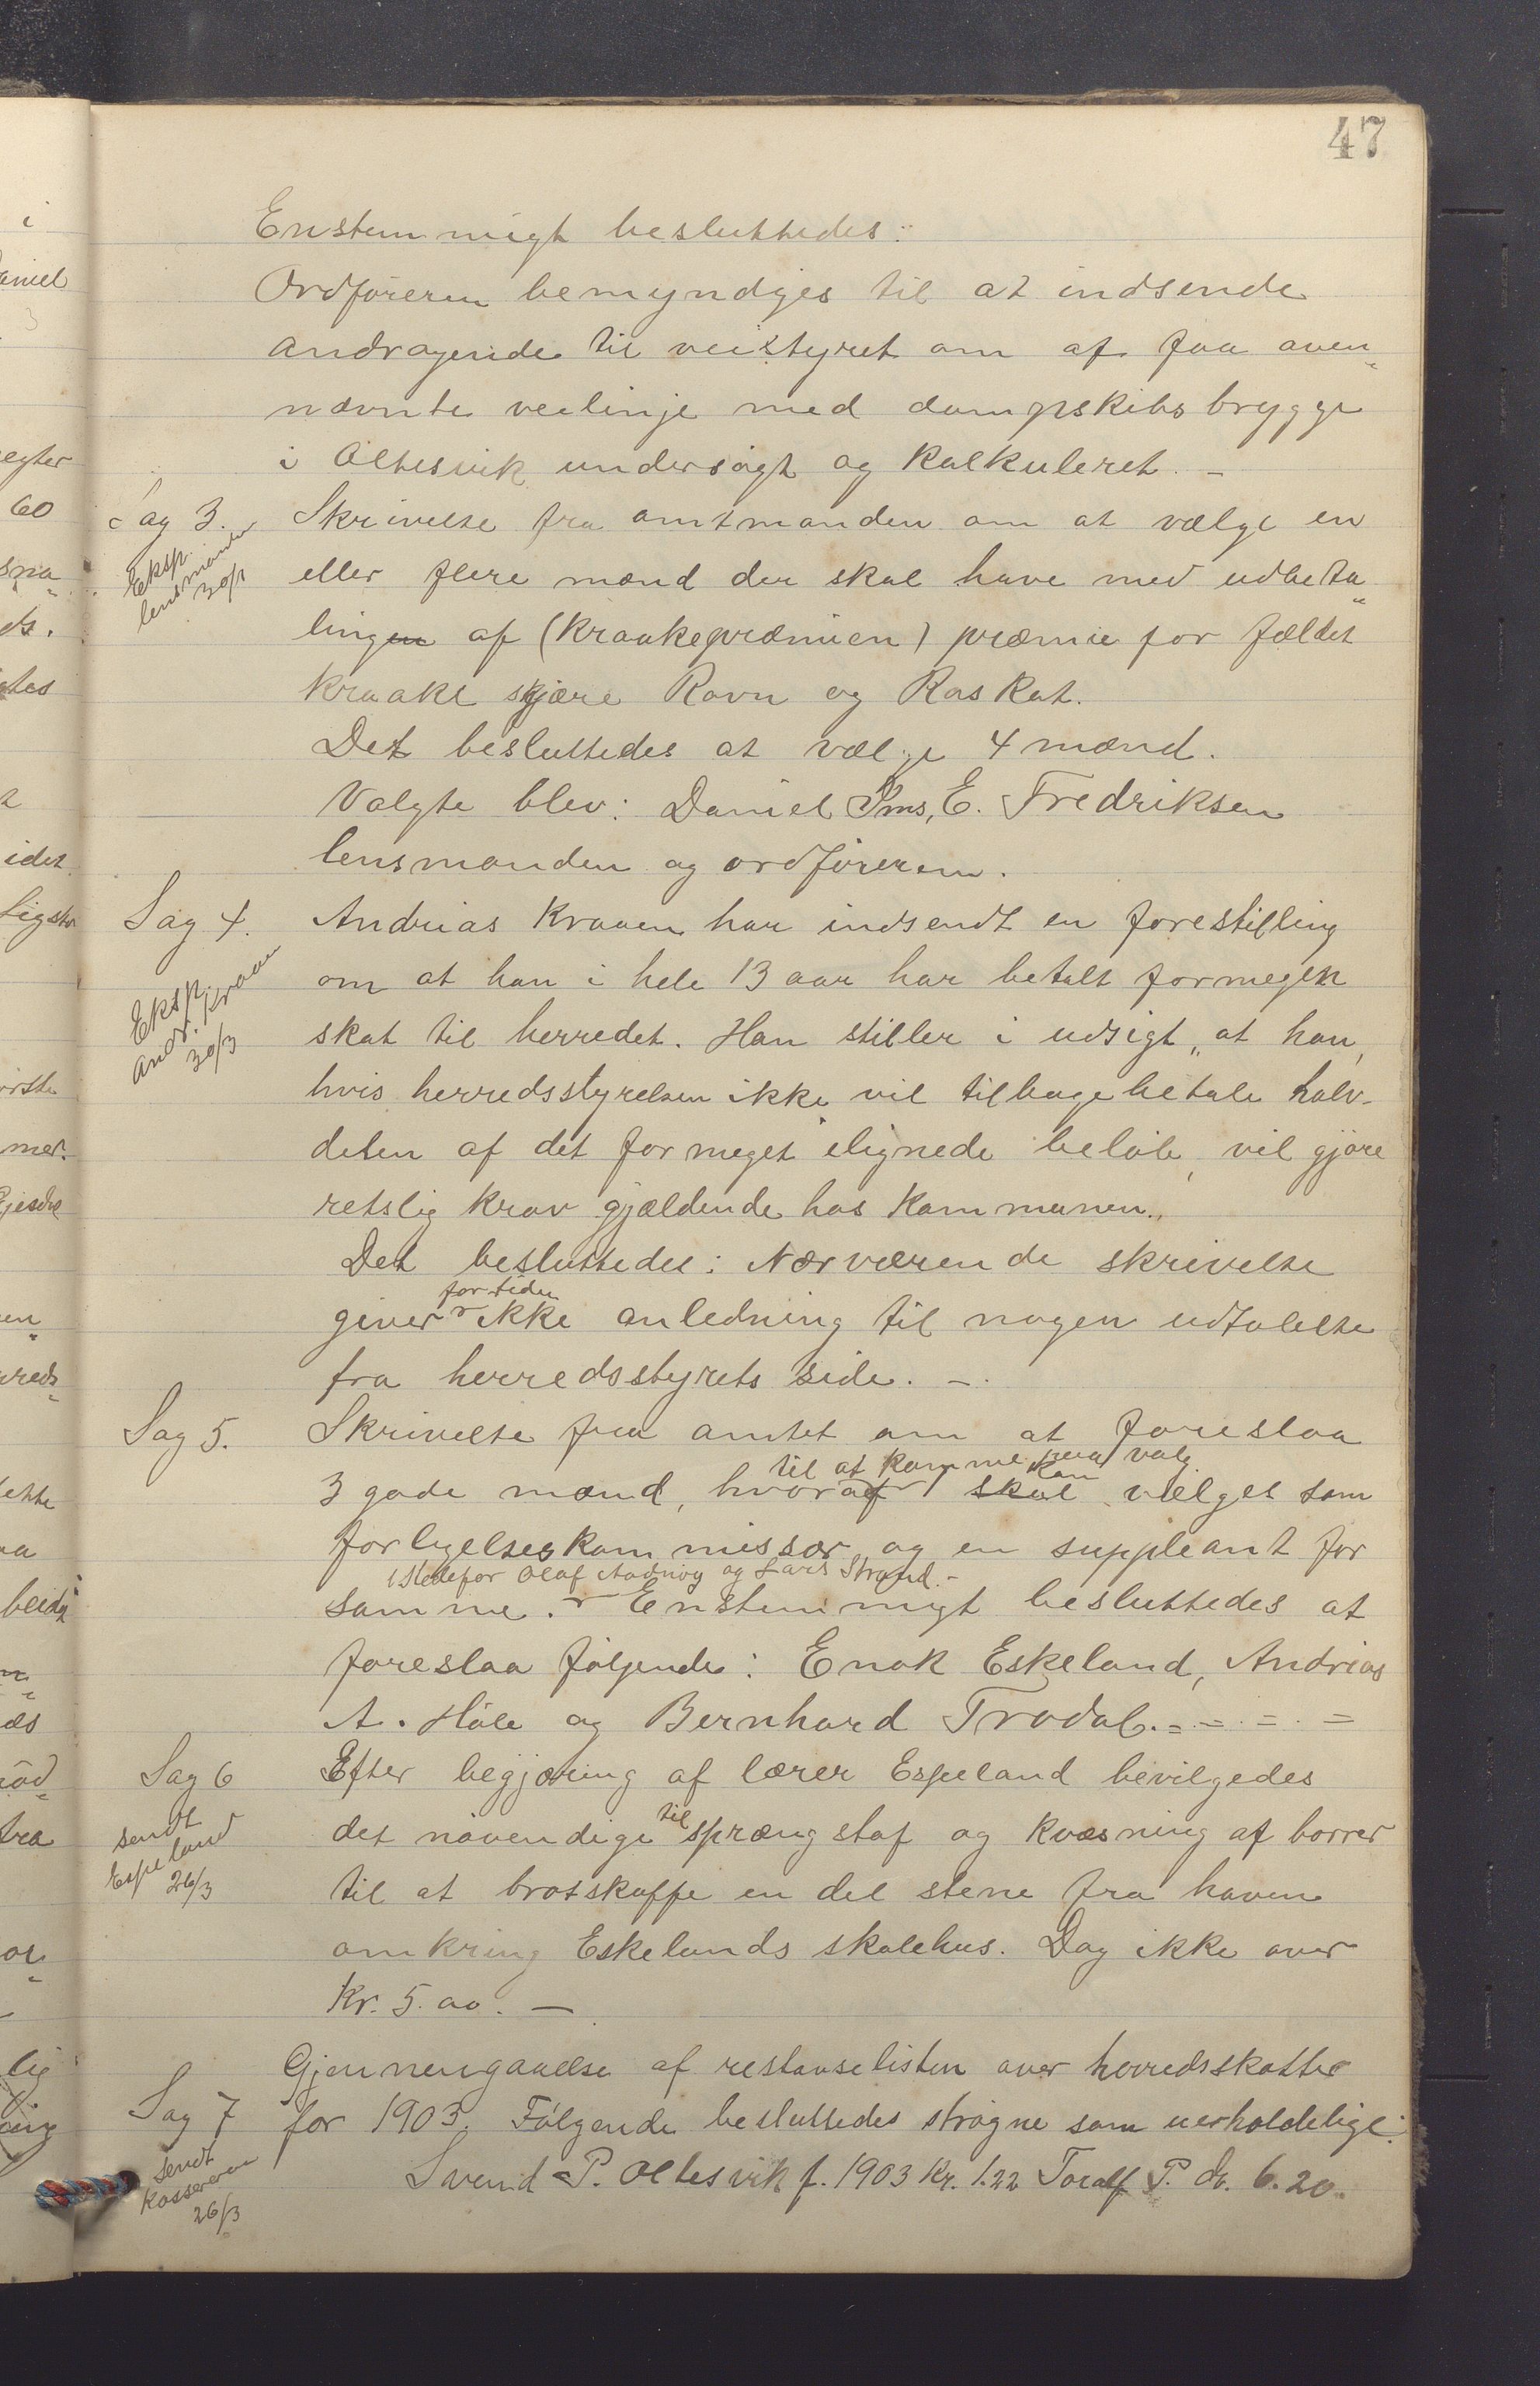 47
Enstemmigt besluttedes:
Ordføreren bemyndiges til at indsende
andragende til veistyret om at faa oven„
nævnte veilinje med dampskibsbrygge
i Oltesvik undersøgt og kalkuleret. –
Sag 3. Skrivelse fra amtmanden om at vælge en
Eksp.
lensmanden
30/3
eller flere mænd der skal have med udbeta„
lingen af (Kraakepræmien) præmie for fældet
kraake skjære Ravn og Raskat.
Det besluttedes at vælge 4 mænd.
Valgte blev: Daniel Sms, E. Fredriksen
lensmanden og ordføreren.
Sag 4. Andrias Kraaen har indsendt en forestilling
Eksp.
And. Kraaen
30/3
om at han i hele 13 aar har betalt formegen
skat til herredet. Han stiller i udsigt „at han,
hvis herredsstyrelsen ikke vil tilbagebetale halv-
delen af det for meget ilignede beløb, vil gjøre
retslig krav gjældende hos Kommunen.„
Det besluttedes: Nærværende skrivelse
for tiden
giver ikke anledning til nogen udtalelse
fra herredsstyrets side. –.
Sag 5. Skrivelse fra amtet om at foreslaa
til at komme paa valg
kan
3 gode mænd, hvoraf 1 skal vælges som
forligelseskommissær og en suppleant for
istedefor Olaf Aadnøy og Lars Strand. –
samme. Enstemmigt besluttedes at
foreslaa følgende: Enok Eskeland, Andrias
A. Høle og Bernhard Frødal. = – = · =
Sag 6 Efter begjæring af lærer Espeland bevilgedes
sendt
Espeland
26/3
til
det nøvendige sprængstof og kvæsning af borrer
til at brotskaffe en del stene fra haven
omkring Eskelands skolehus. Dog ikke over
Kr. 5.00. –
Gjennemgaaelse af restanselisten over herredsskatter
Sag 7 for 1903. Følgende besluttedes strøgne som uerholdelige:
sendt
Kassereren
26/3
Svend P. Oltesvik f. 1903 Kr. 1.22 Toralf P. do. 6.20.